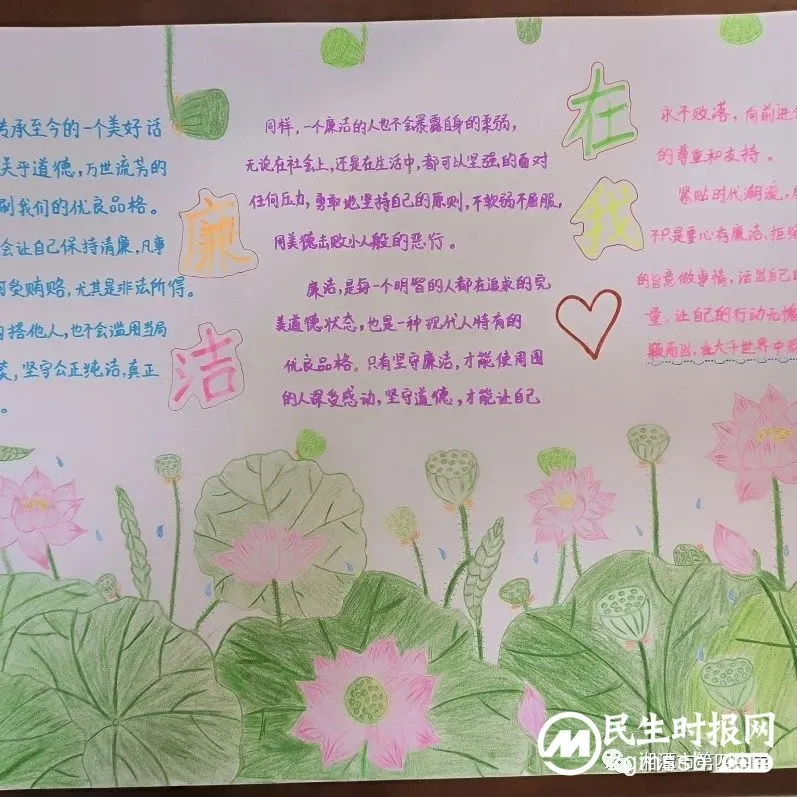 传承至今的一个美好话
关乎道德，万世流芳的
刷我们的优良品格。
会让自己保持清廉，凡事
何受贿赂，尤其是非法所得。
搭他人，也不会滥用当局
坚守公正纯洁，真正
。
廉
洁
同样，一个廉洁的人也不会暴露自身的柔弱，
无论在社会上，还是在生活中，都可以坚强的面对
任何压力，勇敢地坚持自己的原则，不软弱不屈服，
用美德击败小人般的恶行。
廉洁，是每一个明智的人都在追求的完
美道德状态，也是一种现代人特有的
优良品格。只有坚守廉洁，才能使周围
的人深受感动，坚守道德，才能让自己
在
我
永不败落，向前进
的尊重和支持。
紧贴时代潮流，
不只是要心有廉洁、拒绝
的旨意做事情，活出自己
量，让自己的行动无愧
颖而出，在大千世界中
民生时报网
湘潭市第四